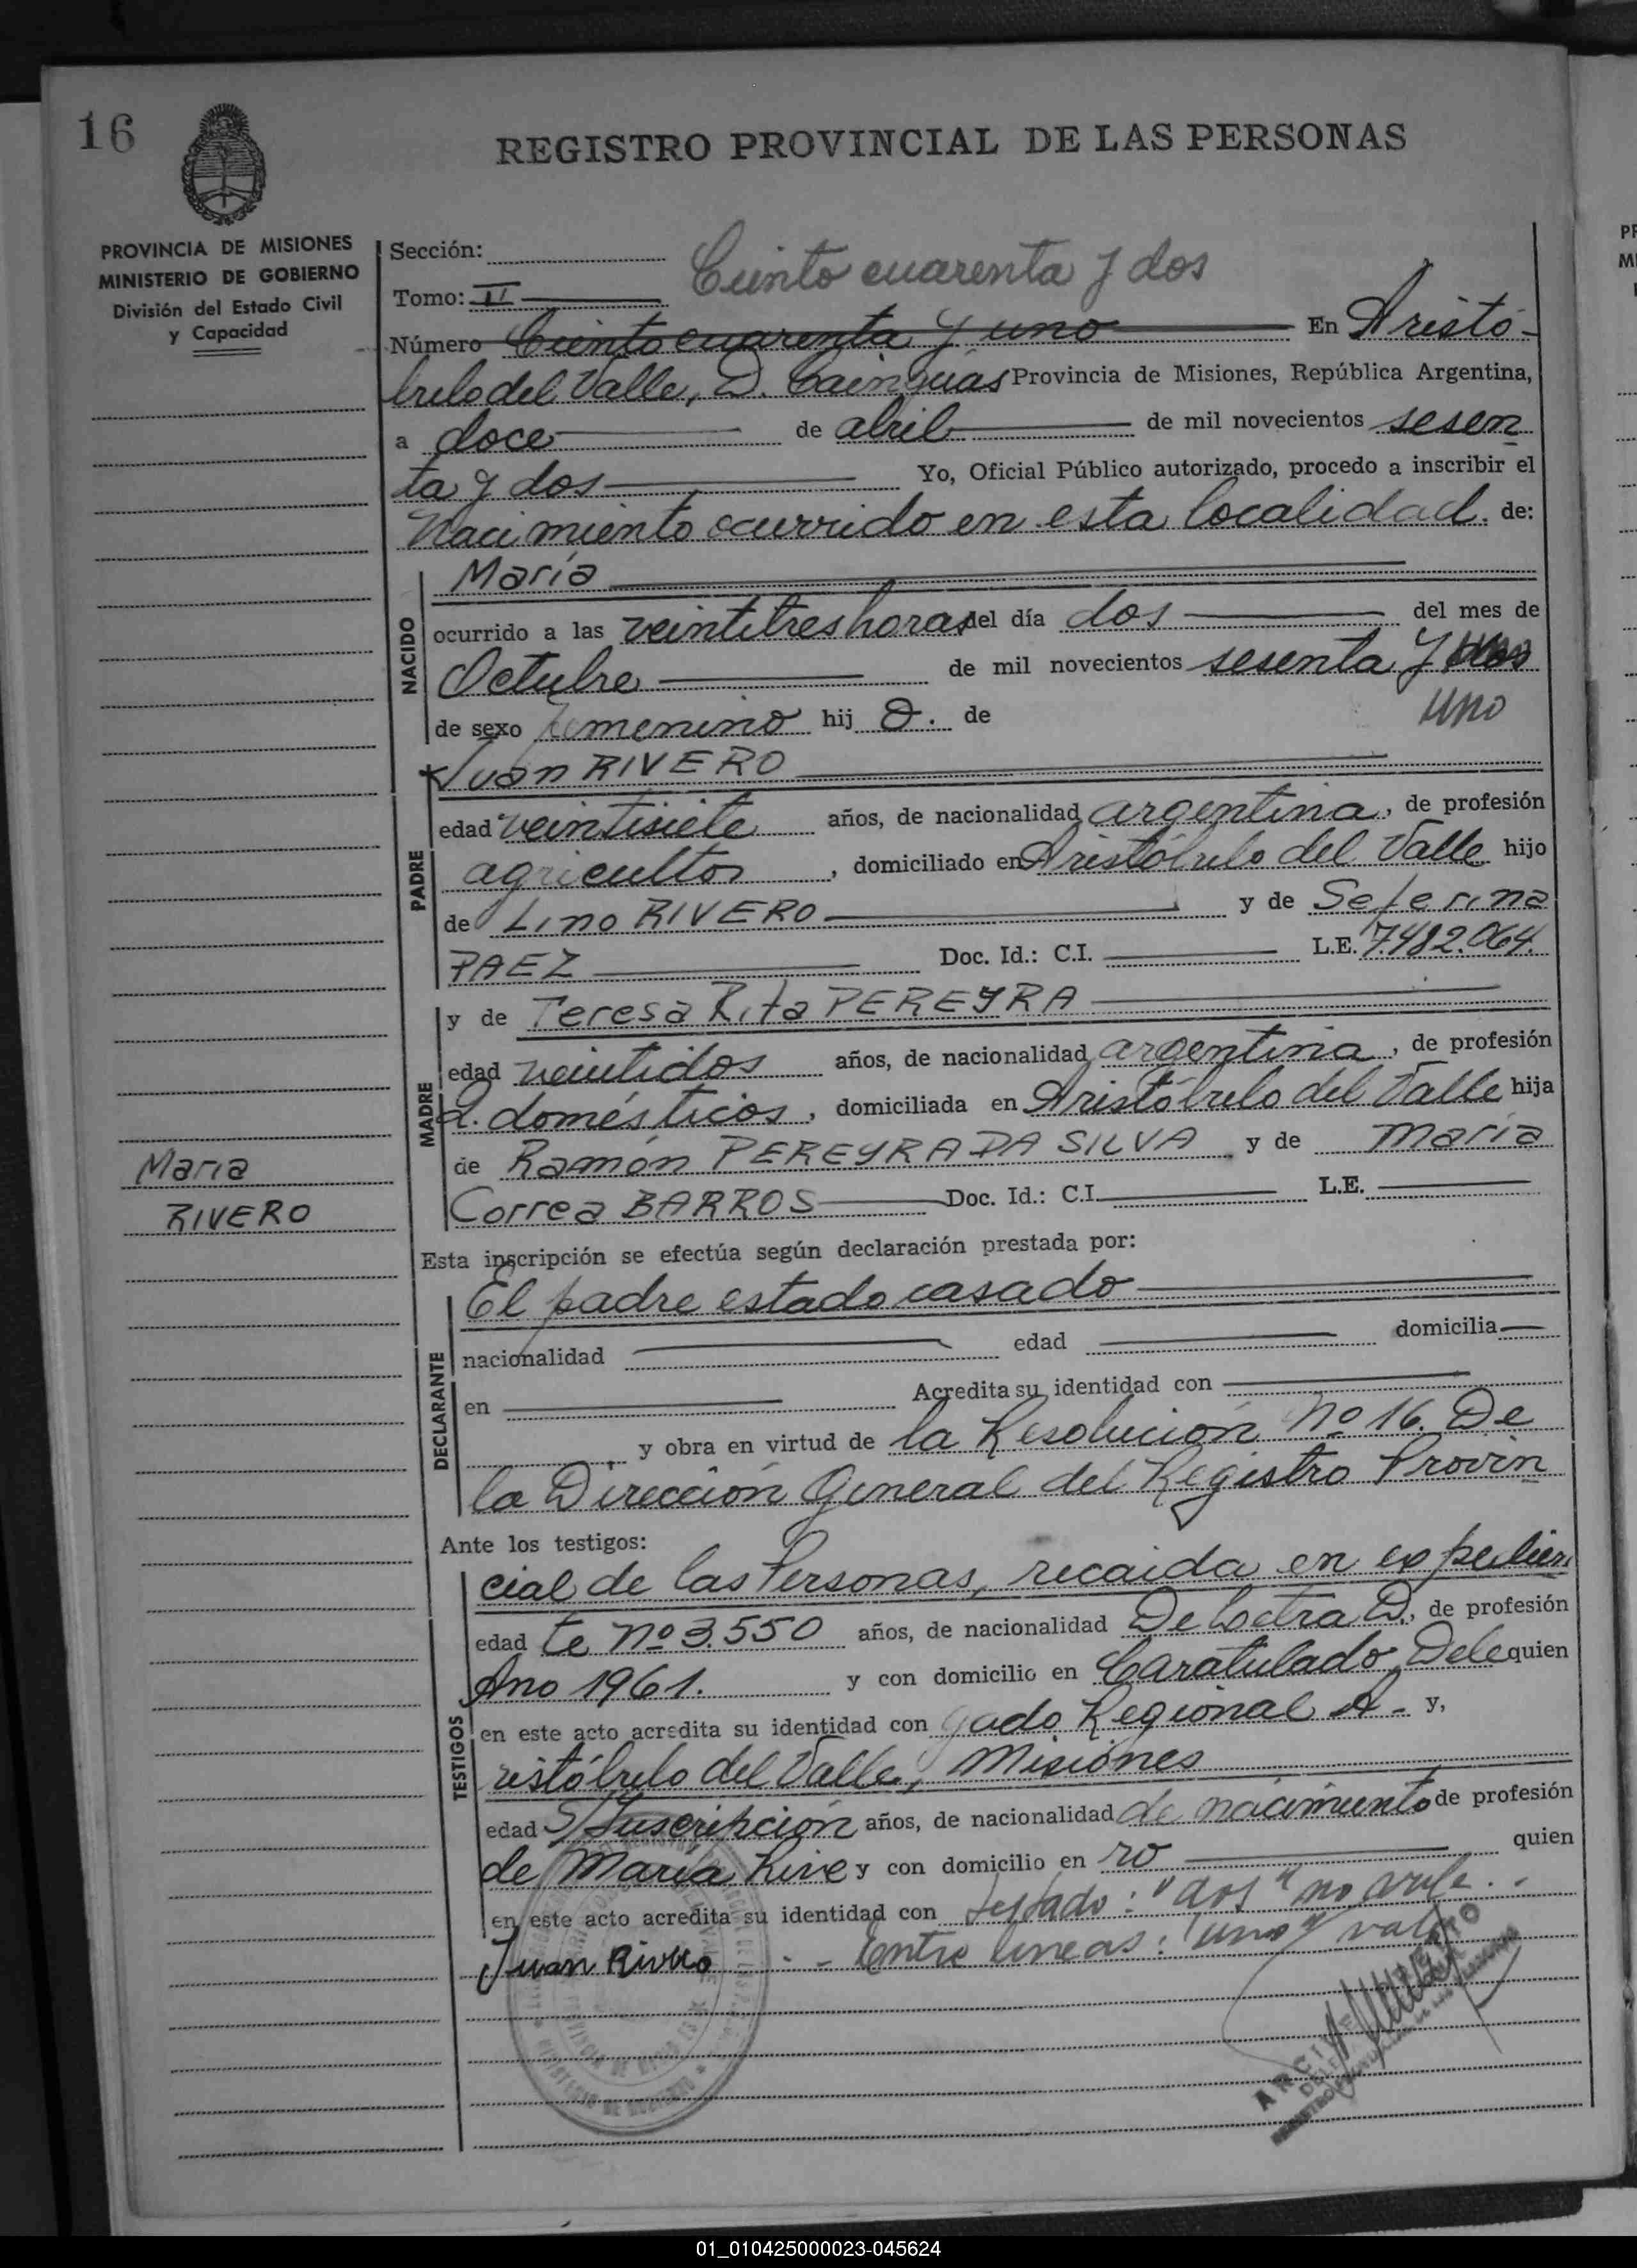 16
REGISTRO PROVINCIAL DE LAS PERSONAS
PROVINCIA DE MISIONES
MINISTERIO DE GOBIERNO
División del Estado Civil
y Capacidad
Sección:
Ciento cuarenta y dos
Tomo: II
Número Ciento cuarenta y uno En Aristó-
bulo del Valle, D. Cainguás Provincia de Misiones, República Argentina,
a doce de abril de mil novecientos sesen
ta y dos Yo, Oficial Público autorizado, procedo a inscribir el
Nacimiento ocurrido en esta localidad. de:
NACIDO
María
ocurrido a las veintitres horas del día dos del mes de
Octubre de mil novecientos sesenta y dos
uno
de sexo femenino hij a. de
PADRE
Juan RIVERO
edad veintisiete años, de nacionalidad argentina, de profesión
agricultor, domiciliado en Aristóbulo del Valle hijo
de Lino RIVERO y de Seferina
PAEZ Doc. Id.: C.I. L.E. 7.482.064.
MADRE
y de Teresa Rita PEREYRA
edad veintidos años, de nacionalidad argentina, de profesión
q. domésticos, domiciliada en Aristóbulo del Valle hija
de Ramón PEREYRA DA SILVA y de María
Correa BARROS Doc. Id.: C.I. L.E.
Maria
RIVERO
Esta inscripción se efectúa según declaración prestada por:
DECLARANTE
El padre estado casado
nacionalidad edad domicilia
en Acredita su identidad con
y obra en virtud de la Resolución Nº 16. De
la Dirección General del Registro Provin
Ante los testigos:
TESTIGOS
cial de las Personas, recaida en expedien
edad te nº 3.550 años, de nacionalidad De Letra D., de profesión
Año 1961. y con domicilio en Caratulado, Dele quien
en este acto acredita su identidad con gado Regional A- y,
ristóbulo del Valle, Misiones
edad S/Suscripción años, de nacionalidad de nacimiento de profesión
de María Rive y con domicilio en ro quien
en este acto acredita su identidad con Testado: "dos" no vale.
Juan Rivero - Entre lineas: "uno" vale
01_010425000023-045624